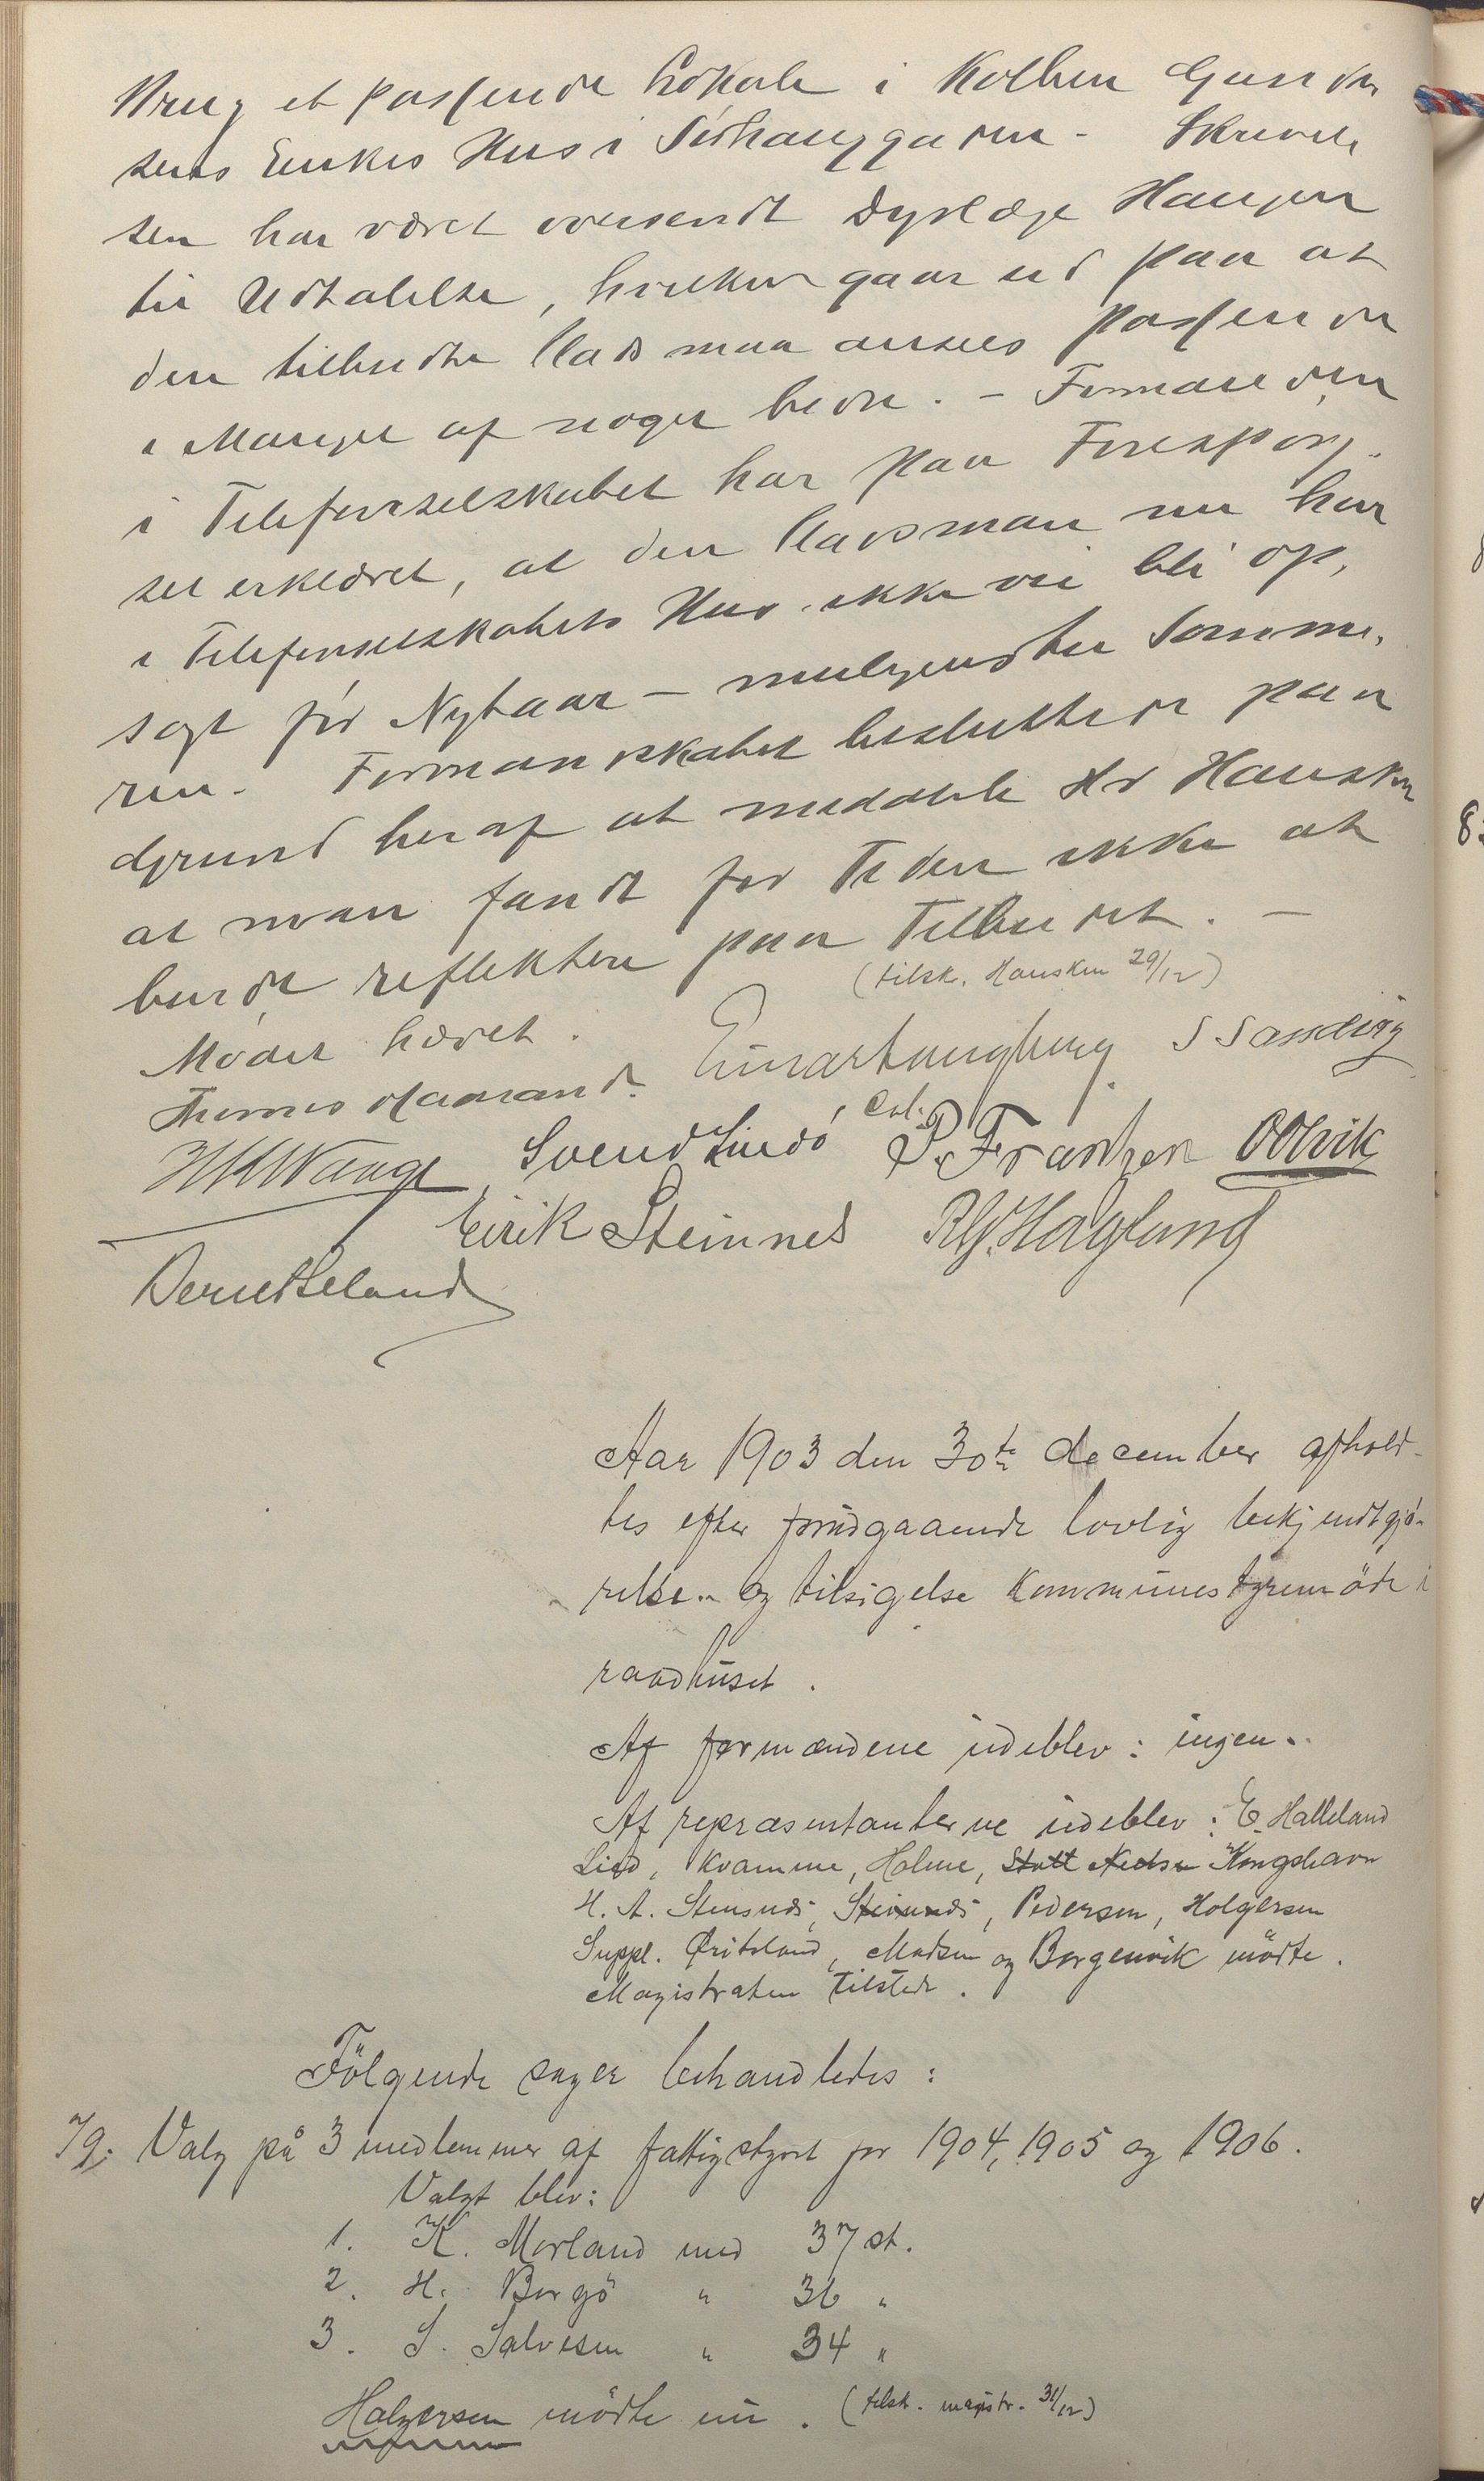 Brug et passende Lokale i Kolben Gunder
sens Enkes Hus i Sørhauggaden. Skrivel
sen har været oversendt Dyrlæge Haugen
til Udtalelse, hvilken gaar ud paa at
den tilbudte Plads maa ansees passende
i Mangel af nogen bedre. - Formanden
i Telefonselskabet har paa Forespørg-
sel erklæret, at den Plads man nu har
i Telefonselskabets Hus ikke vil bli op-
sagt før Nytaar - muligens til Somme-
ren. Formandskabet besluttede paa
Grund heraf at meddele Hr Hausken
at man fandt for Tiden ikke at
burde reflektere paa Tilbudet. -
(tilsk. Hausken 29/12)
Mødet hævet.
Thomas Haaland. Einar Langberg S Sandvig
H H Waage Svend Lindø P. Frantzen O Olvik
Eirik Steinnes R. G. Haglund
Berner Heland
Aar 1903 den 30te december afhold-
tes efter forudgaaende lovlig bekjendtgjø-
relse og tilsigelse kommunestyremøde i
raadhuset.
Af formændene udeblev: ingen.
Af repræsentanterne udeblev: E. Halleland
Lied, Kvamme, Holme, Kongshavn
H. A. Stensnes, Steinnes, Pedersen, Holgersen
Suppl. Øritsland, Madsen og Borgenvik mødte.
Magistraten tilstede.
Følgende sager behandledes:
79. Valg på 3 medlemmer af fattigstyret for 1904, 1905 og 1906.
Valgt blev:
1. K. Morland med 37 st.
2. H. Borgø " 36 "
3. S. Salvesen " 34 "
Holgersen mødte nu. (tilsk. magistr. 31/12)